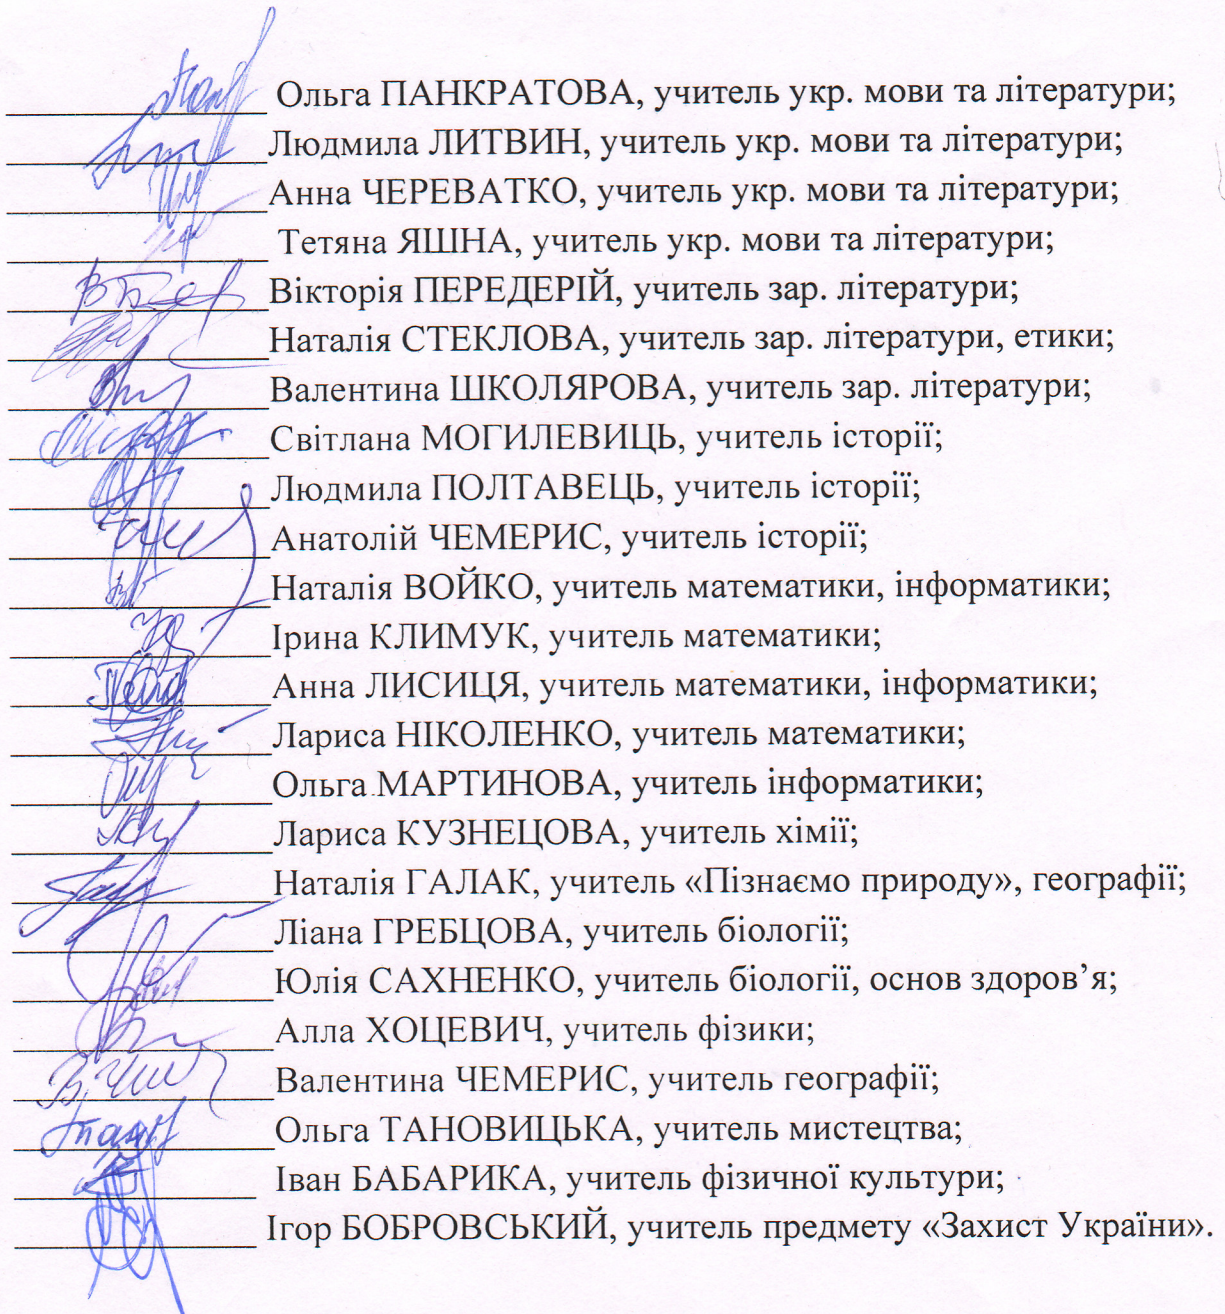 Ольга ПАНКРАТОВА, учитель укр. мови та літератури;
Людмила ЛИТВИН, учитель укр. мови та літератури;
Анна ЧЕРЕВАТКО, учитель укр. мови та літератури;
Тетяна ЯШНА, учитель укр. мови та літератури;
Вікторія ПЕРЕДЕРІЙ, учитель зар. літератури;
Наталія СТЕКЛОВА, учитель зар. літератури, етики;
Валентина ШКОЛЯРОВА, учитель зар. літератури;
Світлана МОГИЛЕВИЦЬ, учитель історії;
Людмила ПОЛТАВЕЦЬ, учитель історії;
Анатолій ЧЕМЕРИС, учитель історії;
Наталія ВОЙКО, учитель математики, інформатики;
Ірина КЛИМУК, учитель математики;
Анна ЛИСИЦЯ, учитель математики, інформатики;
Лариса НІКОЛЕНКО, учитель математики;
Ольга МАРТИНОВА, учитель інформатики;
Лариса КУЗНЕЦОВА, учитель хімії;
Наталія ГАЛАК, учитель «Пізнаємо природу», географії;
Ліана ГРЕБЦОВА, учитель біології;
Юлія САХНЕНКО, учитель біології, основ здоров’я;
Алла ХОЦЕВИЧ, учитель фізики;
Валентина ЧЕМЕРИС, учитель географії;
Ольга ТАНОВИЦЬКА, учитель мистецтва;
Іван БАБАРИКА, учитель фізичної культури;
Ігор БОБРОВСЬКИЙ, учитель предмету «Захист України».